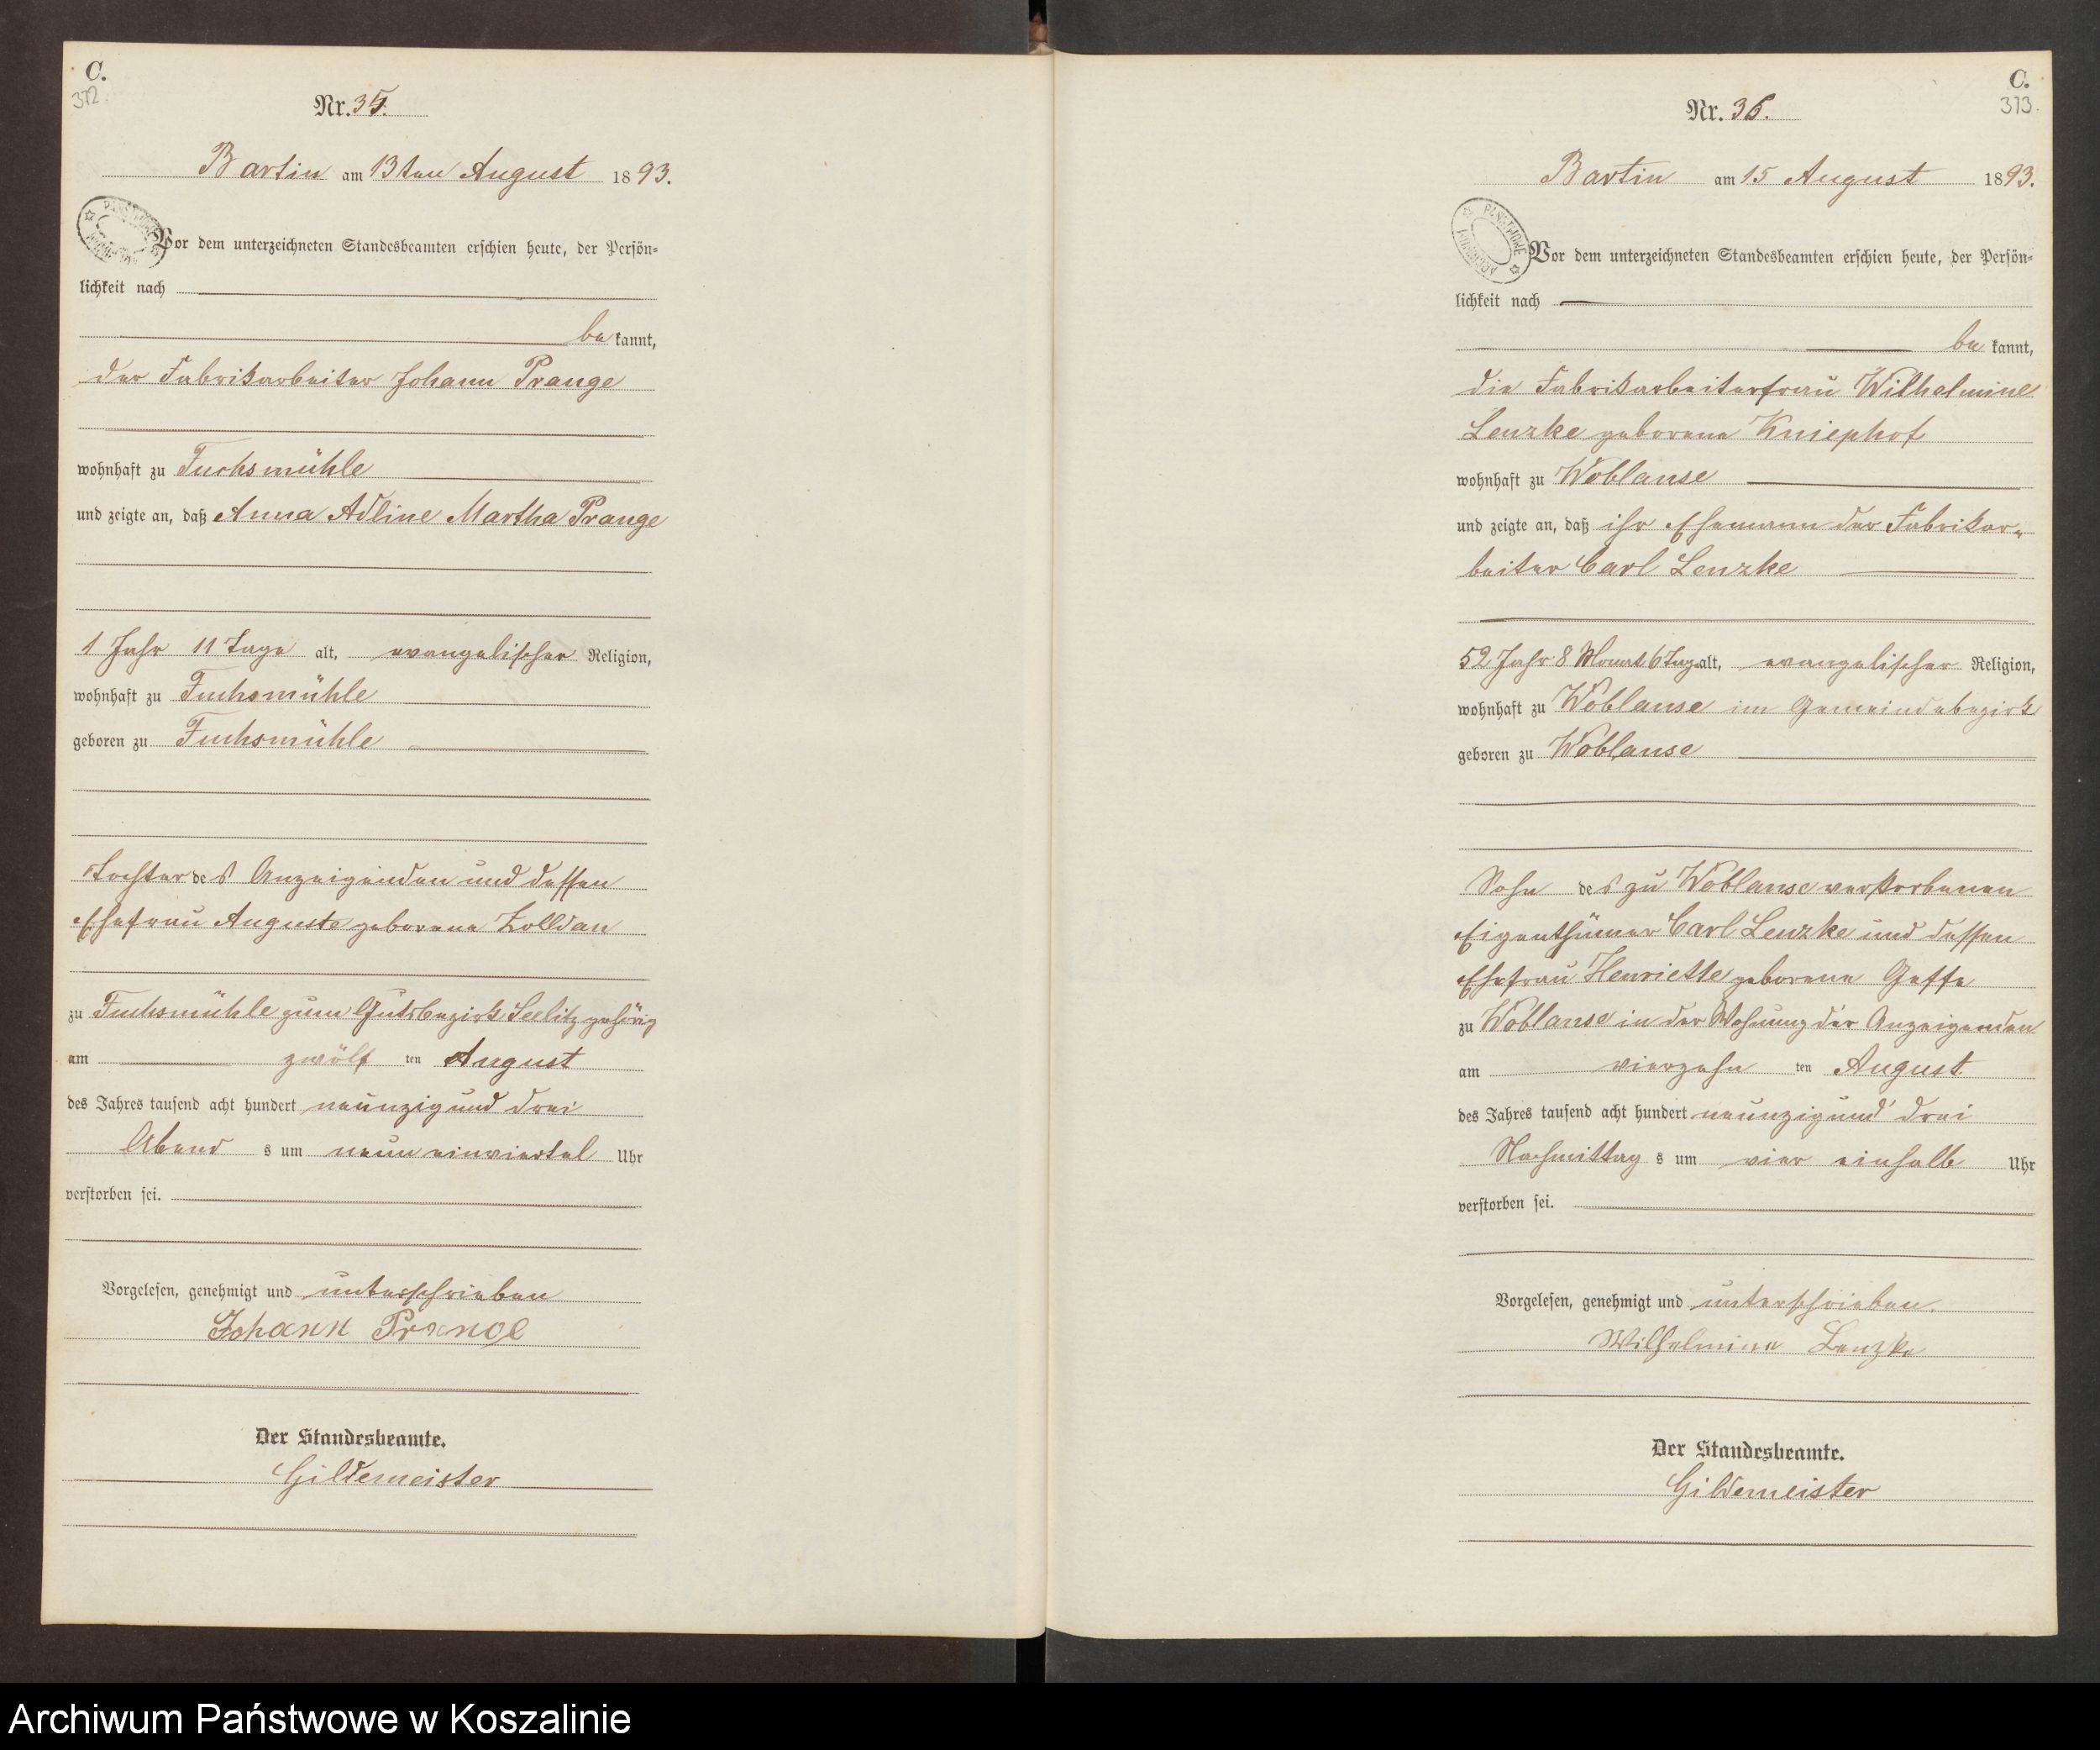 C.
372.
Nr. 35.
Bartin am 13ten August 1893.
Vor dem unterzeichneten Standesbeamten erschien heute, der Persön-
lichkeit nach
be kannt,
der Fabrikarbeiter Johann Prange
wohnhaft zu Fuchsmühle
und zeigte an, daß Anna Adline Martha Prange
1 Jahr 11 Tage alt, evangelischer Religion,
wohnhaft zu Fuchsmühle
geboren zu Fuchsmühle
Tochter des Anzeigenden und dessen
Ehefrau Auguste geborene Zolldan
zu Fuchsmühle zum Gutsbezirk Seelitz gehörig
am zwölf ten August
des Jahres tausend acht hundert neunzig und drei
Abend s um neun einviertel Uhr
verstorben sei.
Vorgelesen, genehmigt und unterschrieben
Johann Prange
Der Standesbeamte.
Gildemeister
C.
373.
Nr. 36.
Bartin am 15 August 1893.
PAŃSTWOWE ARCHIWUM
Vor dem unterzeichneten Standesbeamten erschien heute, der Persön-
lichkeit nach
be kannt,
die Fabrikarbeiterfrau Wilhelmine
Lenzke geborene Kniephof
wohnhaft zu Woblanse
und zeigte an, daß ihr Ehemann der Fabrikar-
beiter Carl Lenzke
52 Jahr 8 Monat 6 Tag alt, evangelischer Religion,
wohnhaft zu Woblanse im Gemeindebezirk
geboren zu Woblanse
Sohn des zu Woblanse verstorbenen
Eigenthümer Carl Lenzke und dessen
Ehefrau Henriette geborene
zu Woblanse in der Wohnung der Anzeigenden
am vierzehn ten August
des Jahres tausend acht hundert neunzig und drei
Nachmittag s um vier einhalb Uhr
verstorben sei.
Vorgelesen, genehmigt und unterschrieben.
Wilhelmine Lenzke
Der Standesbeamte.
Gildemeister
Archiwum Państwowe w Koszalinie